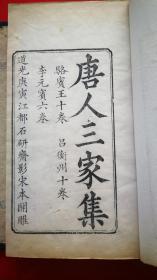 唐人三家集
駱賓王十卷　呂衡州十卷
李元賓六卷
道光庚寅江都石研齋影宋本開雕